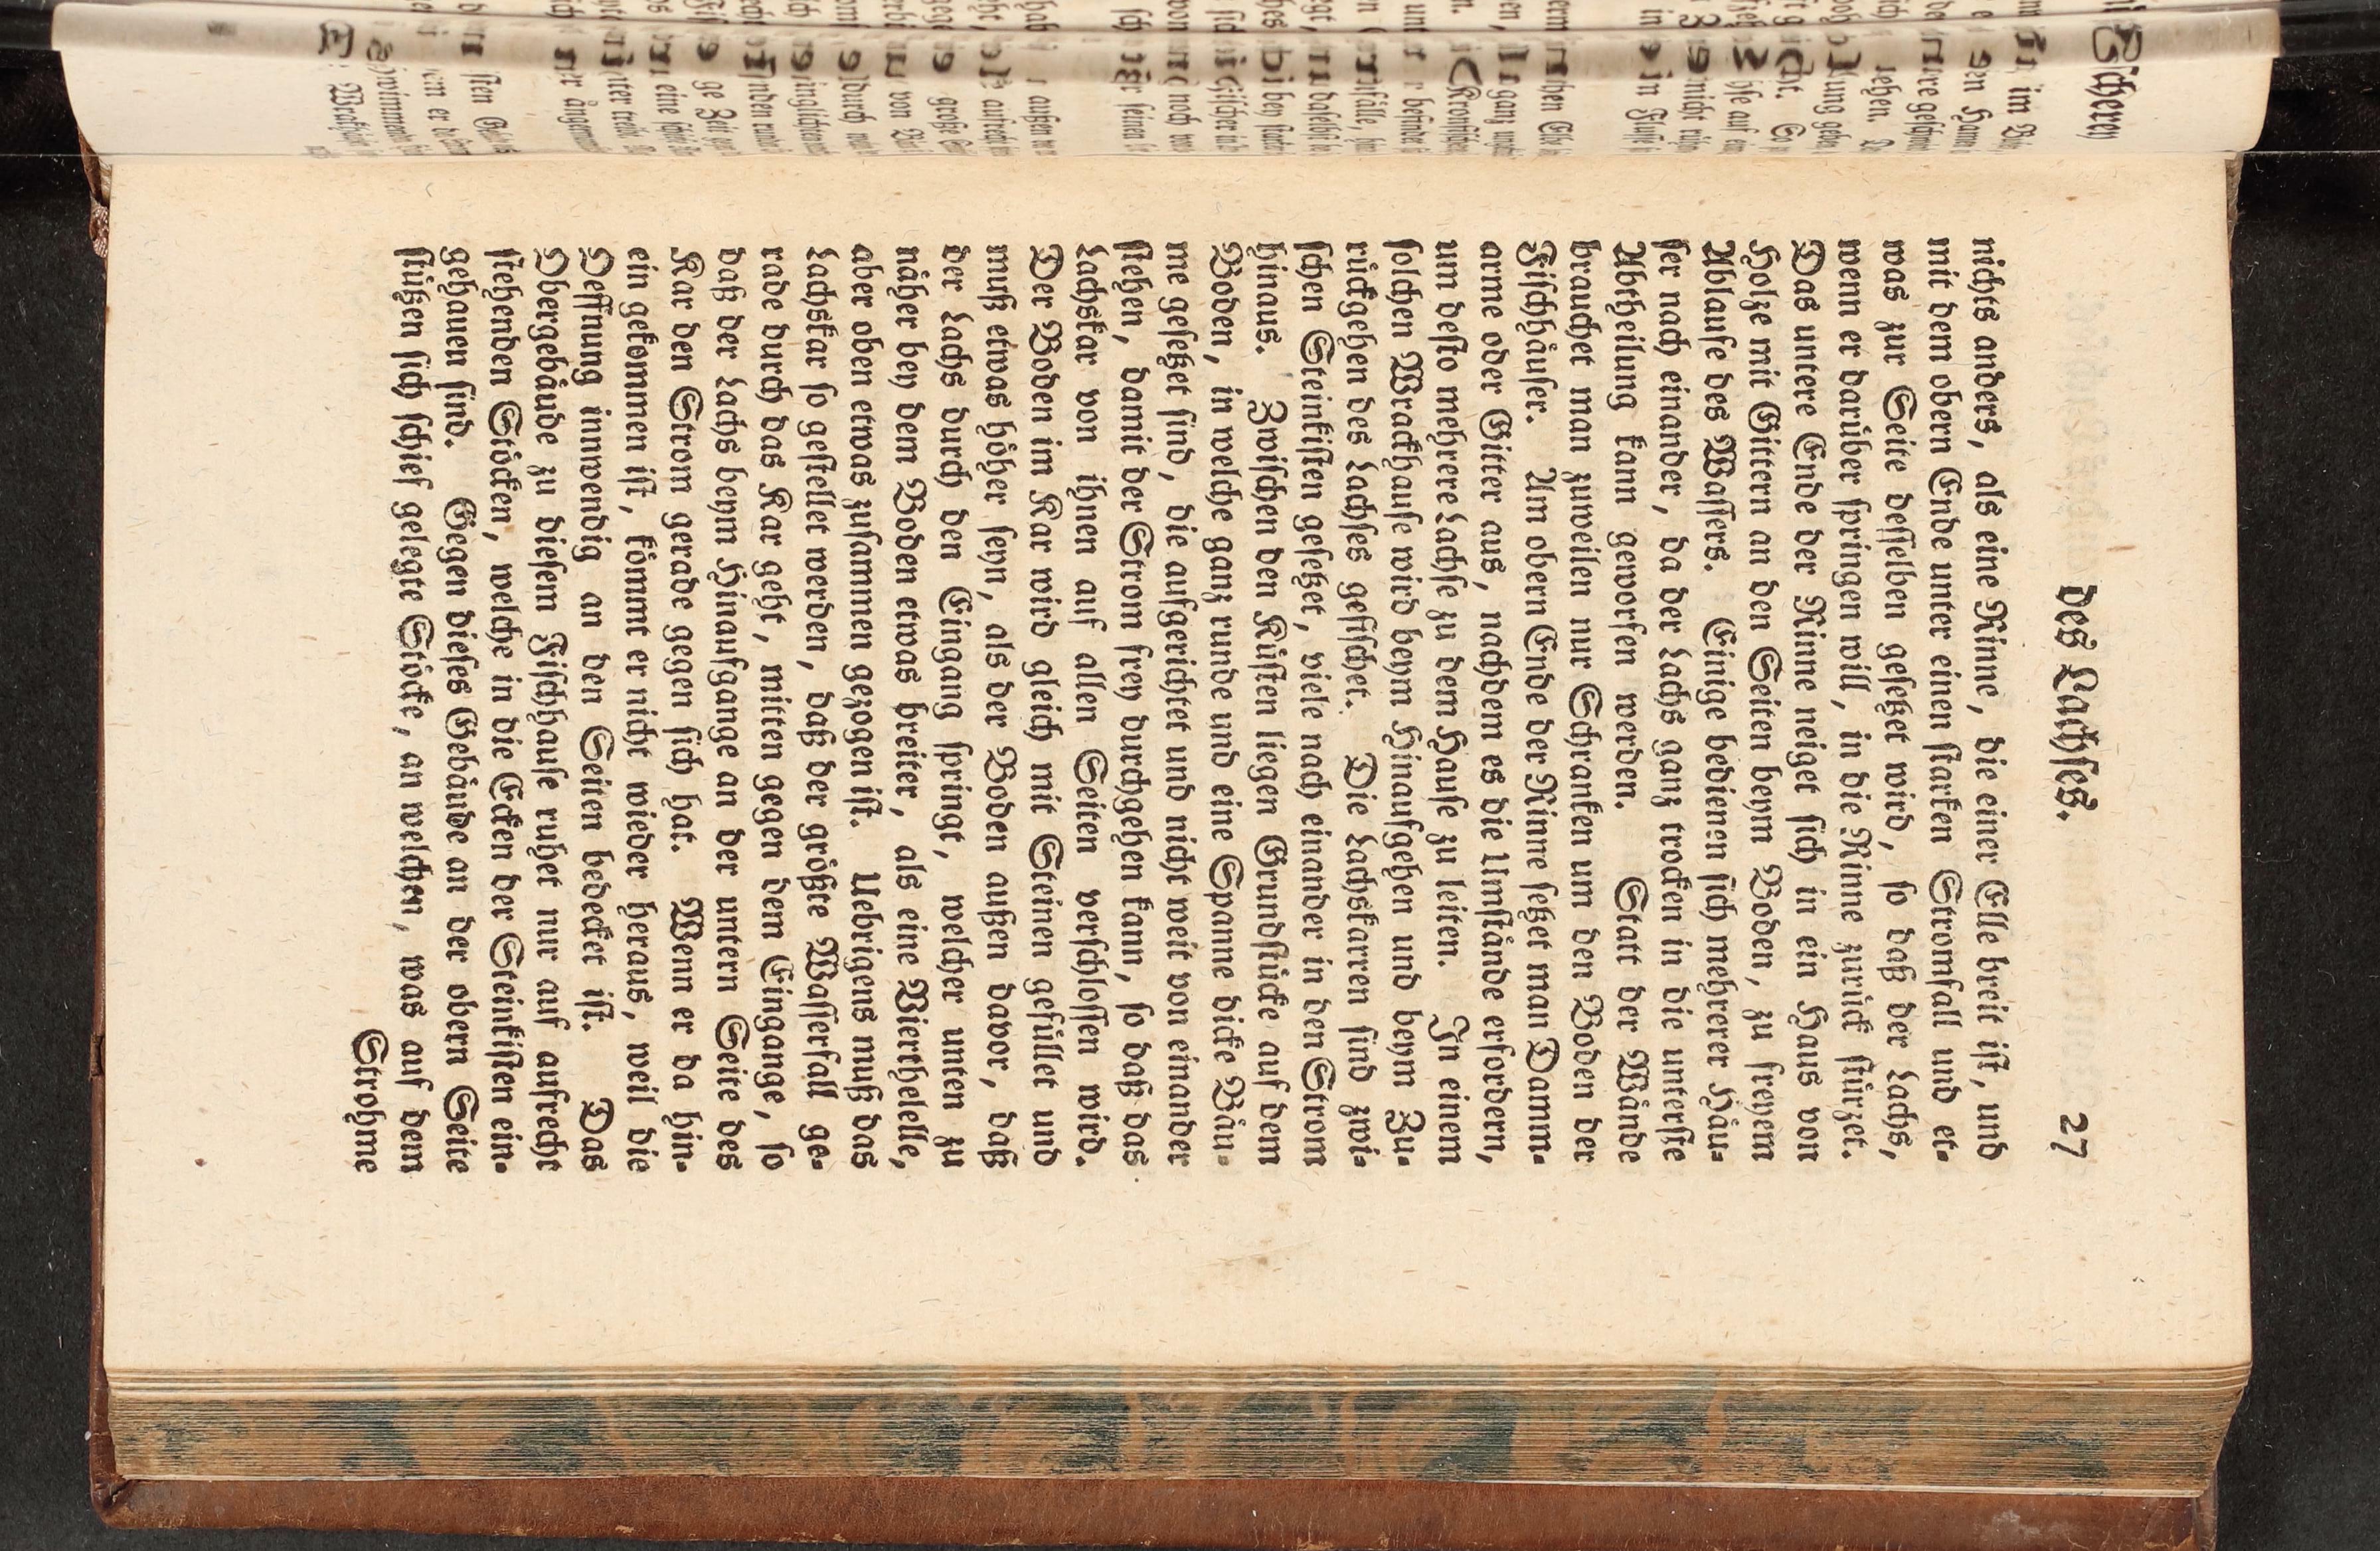 des Lachses. 27
nichts anders, als eine Rinne, die einer Elle breit ist, und
mit dem obern Ende unter einen starken Stromfall und et-
was zur Seite desselben gesetzet wird, so daß der Lachs,
wenn er darüber springen will, in die Rinne zurück stürzet.
Das untere Ende der Rinne neiget sich in ein Haus von
Holze mit Gittern an den Seiten beym Boden, zu freyem
Ablaufe des Wassers. Einige bedienen sich mehrerer Häu-
ser nach einander, da der Lachs ganz trocken in die unterste
Abtheilung kann geworfen werden. Statt der Wände
brauchet man zuweilen nur Schranken um den Boden der
Fischhäuser. Am obern Ende der Rinne setzet man Damm-
arme oder Gitter aus, nachdem es die Umstände erfordern,
um desto mehrere Lachse zu dem Hause zu leiten. In einem
solchen Wrackhause wird beym Hinaufgehen und beym Zu-
rückgehen des Lachses gefischet. Die Lachskarren sind zwi-
schen Steinkisten gesetzet, viele nach einander in den Strom
hinaus. Zwischen den Kisten liegen Grundstücke auf dem
Boden, in welche ganz runde und eine Spanne dicke Bäu-
me gesetzet sind, die aufgerichtet und nicht weit von einander
stehen, damit der Strom frey durchgehen kann, so daß das
Lachskar von ihnen auf allen Seiten verschlossen wird.
Der Boden im Kar wird gleich mit Steinen gefüllet und
muß etwas höher seyn, als der Boden außen davor, daß
der Lachs durch den Eingang springt, welcher unten zu
näher bey dem Boden etwas breiter, als eine Vierthelelle,
aber oben etwas zusammen gezogen ist. Uebrigens muß das
Lachskar so gestellet werden, daß der größte Wasserfall ge-
rade durch das Kar geht, mitten gegen dem Eingange, so
daß der Lachs beym Hinaufgange an der untern Seite des
Kar den Strom gerade gegen sich hat. Wenn er da hin-
ein gekommen ist, kömmt er nicht wieder heraus, weil die
Oeffnung innwendig an den Seiten bedecket ist. Das
Obergebäude zu diesem Fischhause ruhet nur auf aufrecht
stehenden Stöcken, welche in die Ecken der Steinkisten ein-
gehauen sind. Gegen dieses Gebäude an der obern Seite
stützen sich schief gelegte Stöcke, an welchen, was auf dem
Strohme